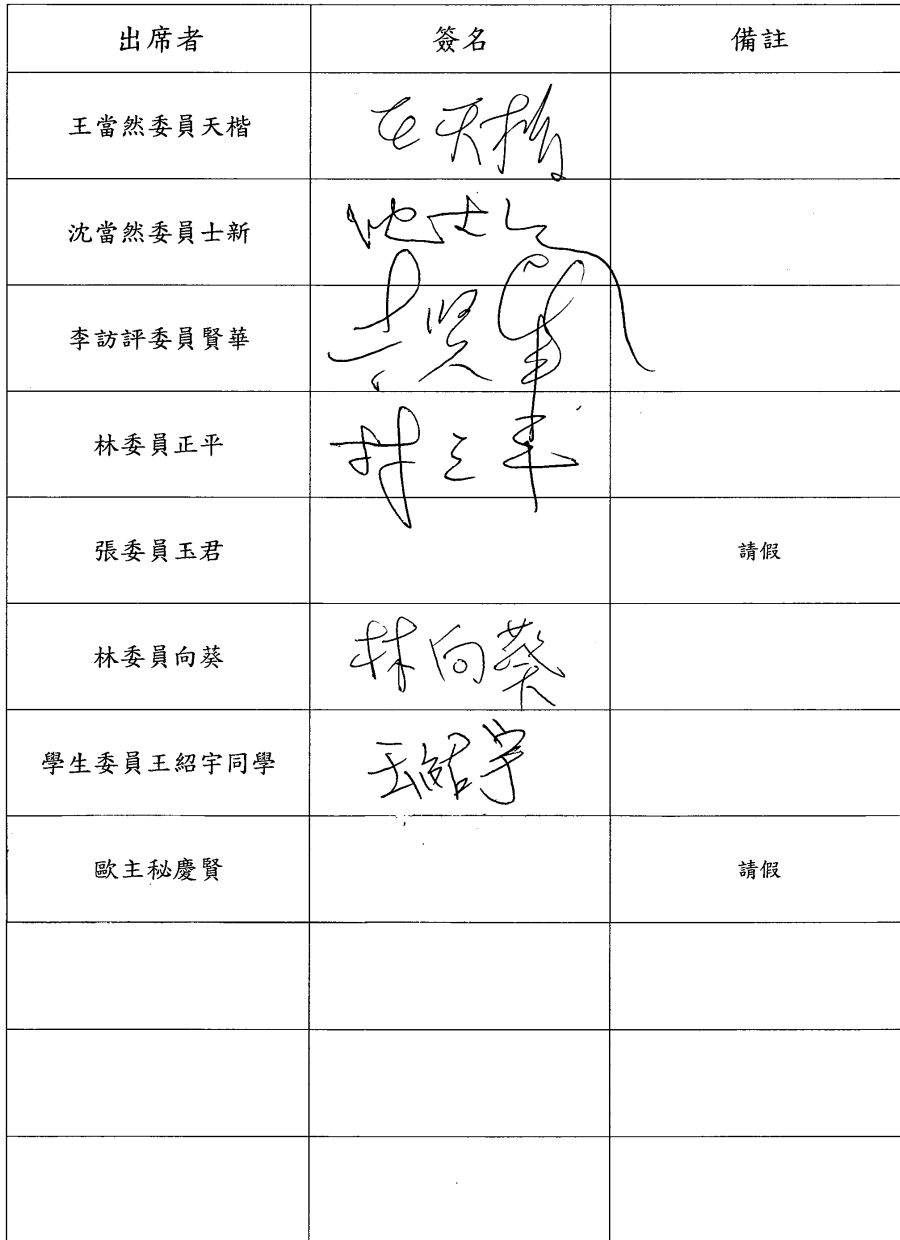 出席者 簽名 備註
王當然委員天楷 王天楷
沈當然委員士新
李訪評委員賢華 李賢華
林委員正平 林正平
張委員玉君 請假
林委員向葵 林向葵
學生委員王紹宇同學 王紹宇
歐主秘慶賢 請假